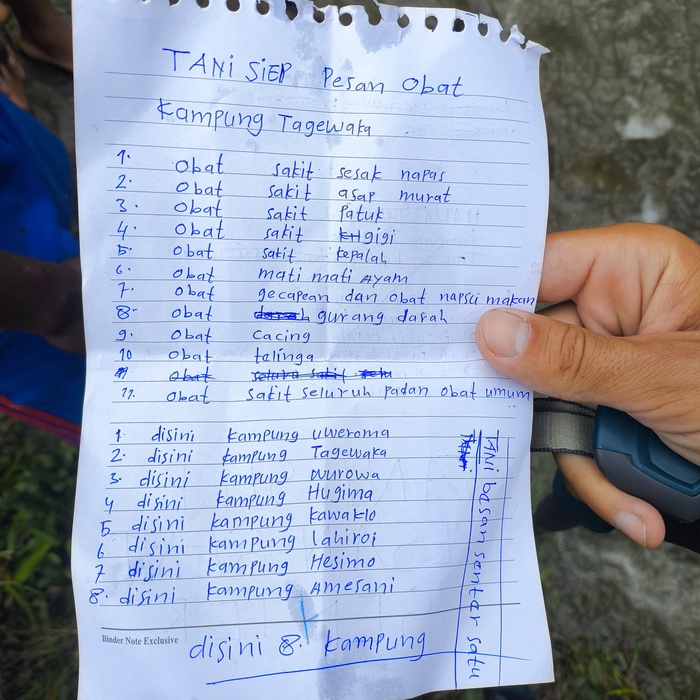 TANi SiEP Pesan Obat
Kampung Tagewaka
1. Obat sakit sesak napas
2. Obat sakit asap murat
3. Obat sakit Patuk
4. Obat sakit gigi
5. Obat sakit kepalah
6. Obat mati mati Ayam
7. Obat gecapean dan obat napsu makan
8. Obat gurang darah
9. Obat cacing
10 Obat telinga
11. obat sakit seluruh padan obat umum
1. disini kampung uweroma
2. disini kampung Tagewaka
3. disini kampung Nurowa
4 disini kampung Hugima
5 disini kampung Kawaklo
6 disini kampung lahiroi
7 disini kampung Hesimo
8. disini kampung Amesani
TANi basan sentar satu
Binder Note Exclusive
disini 8. kampung